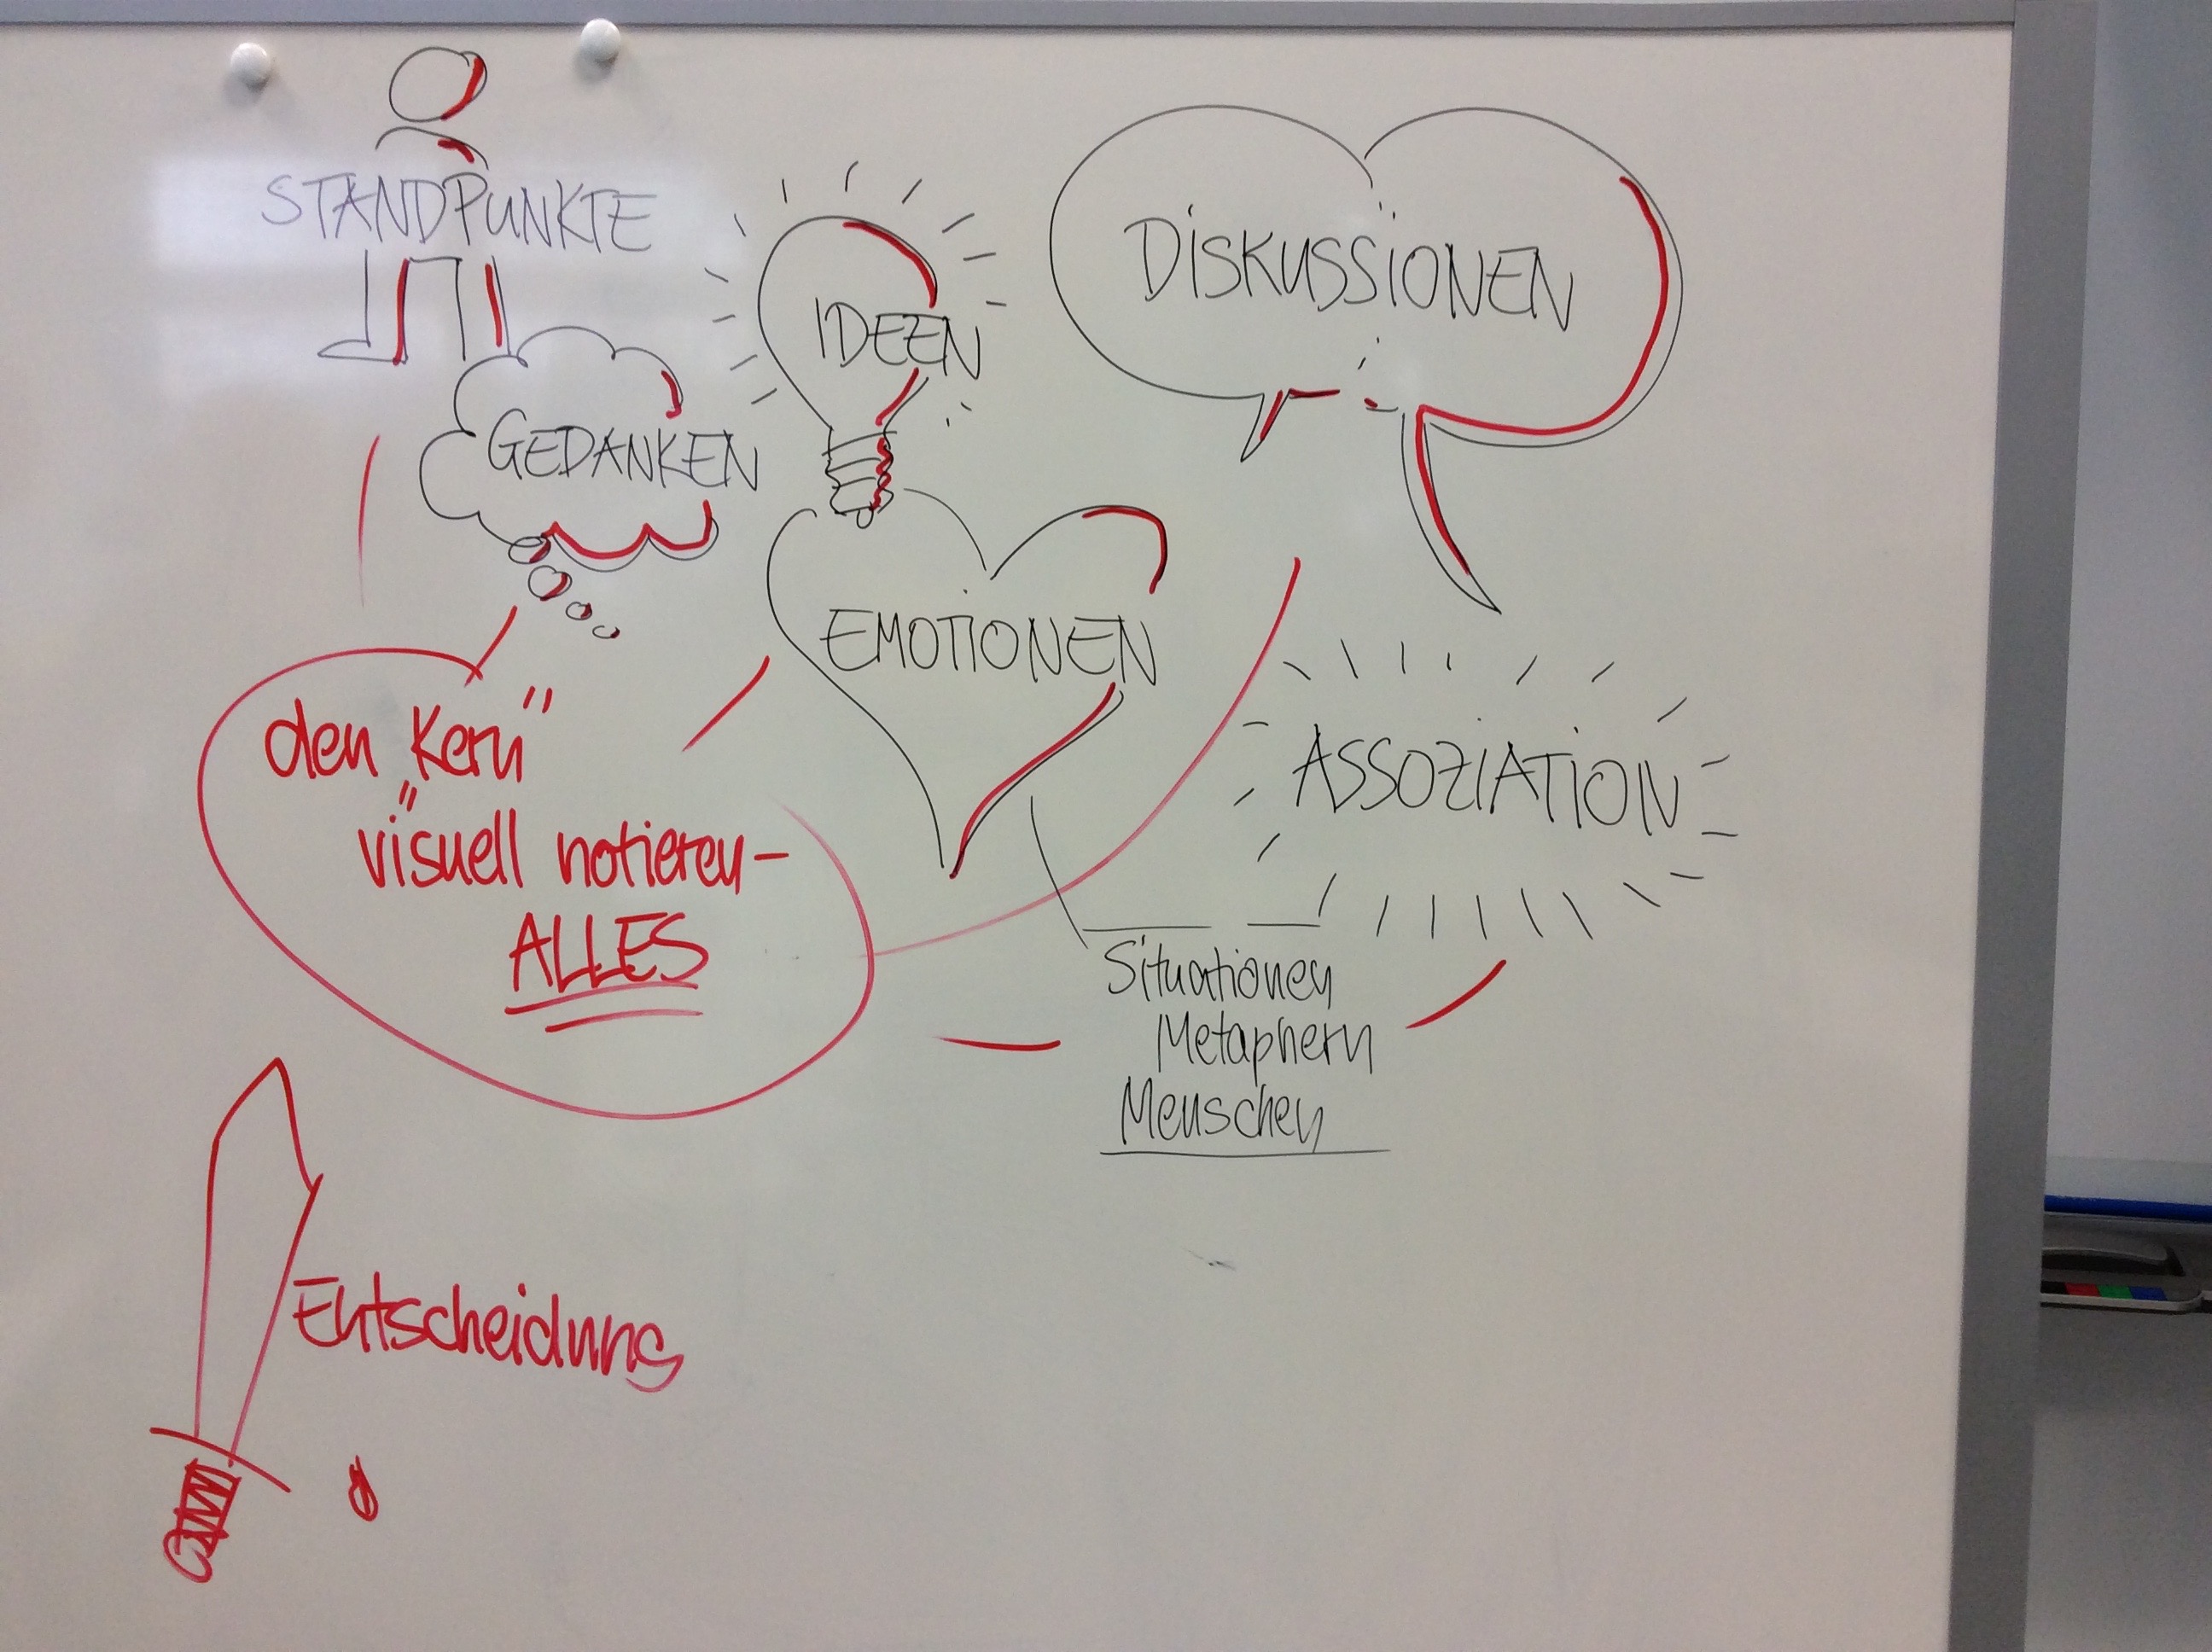 STANDPUNKTE
IDEEN
DISKUSSIONEN
GEDANKEN
EMOTIONEN
den "Kern"
visuell notieren-
ALLES
ASSOZIATION
Situationen
Metaphern
Menschen
Entscheidung